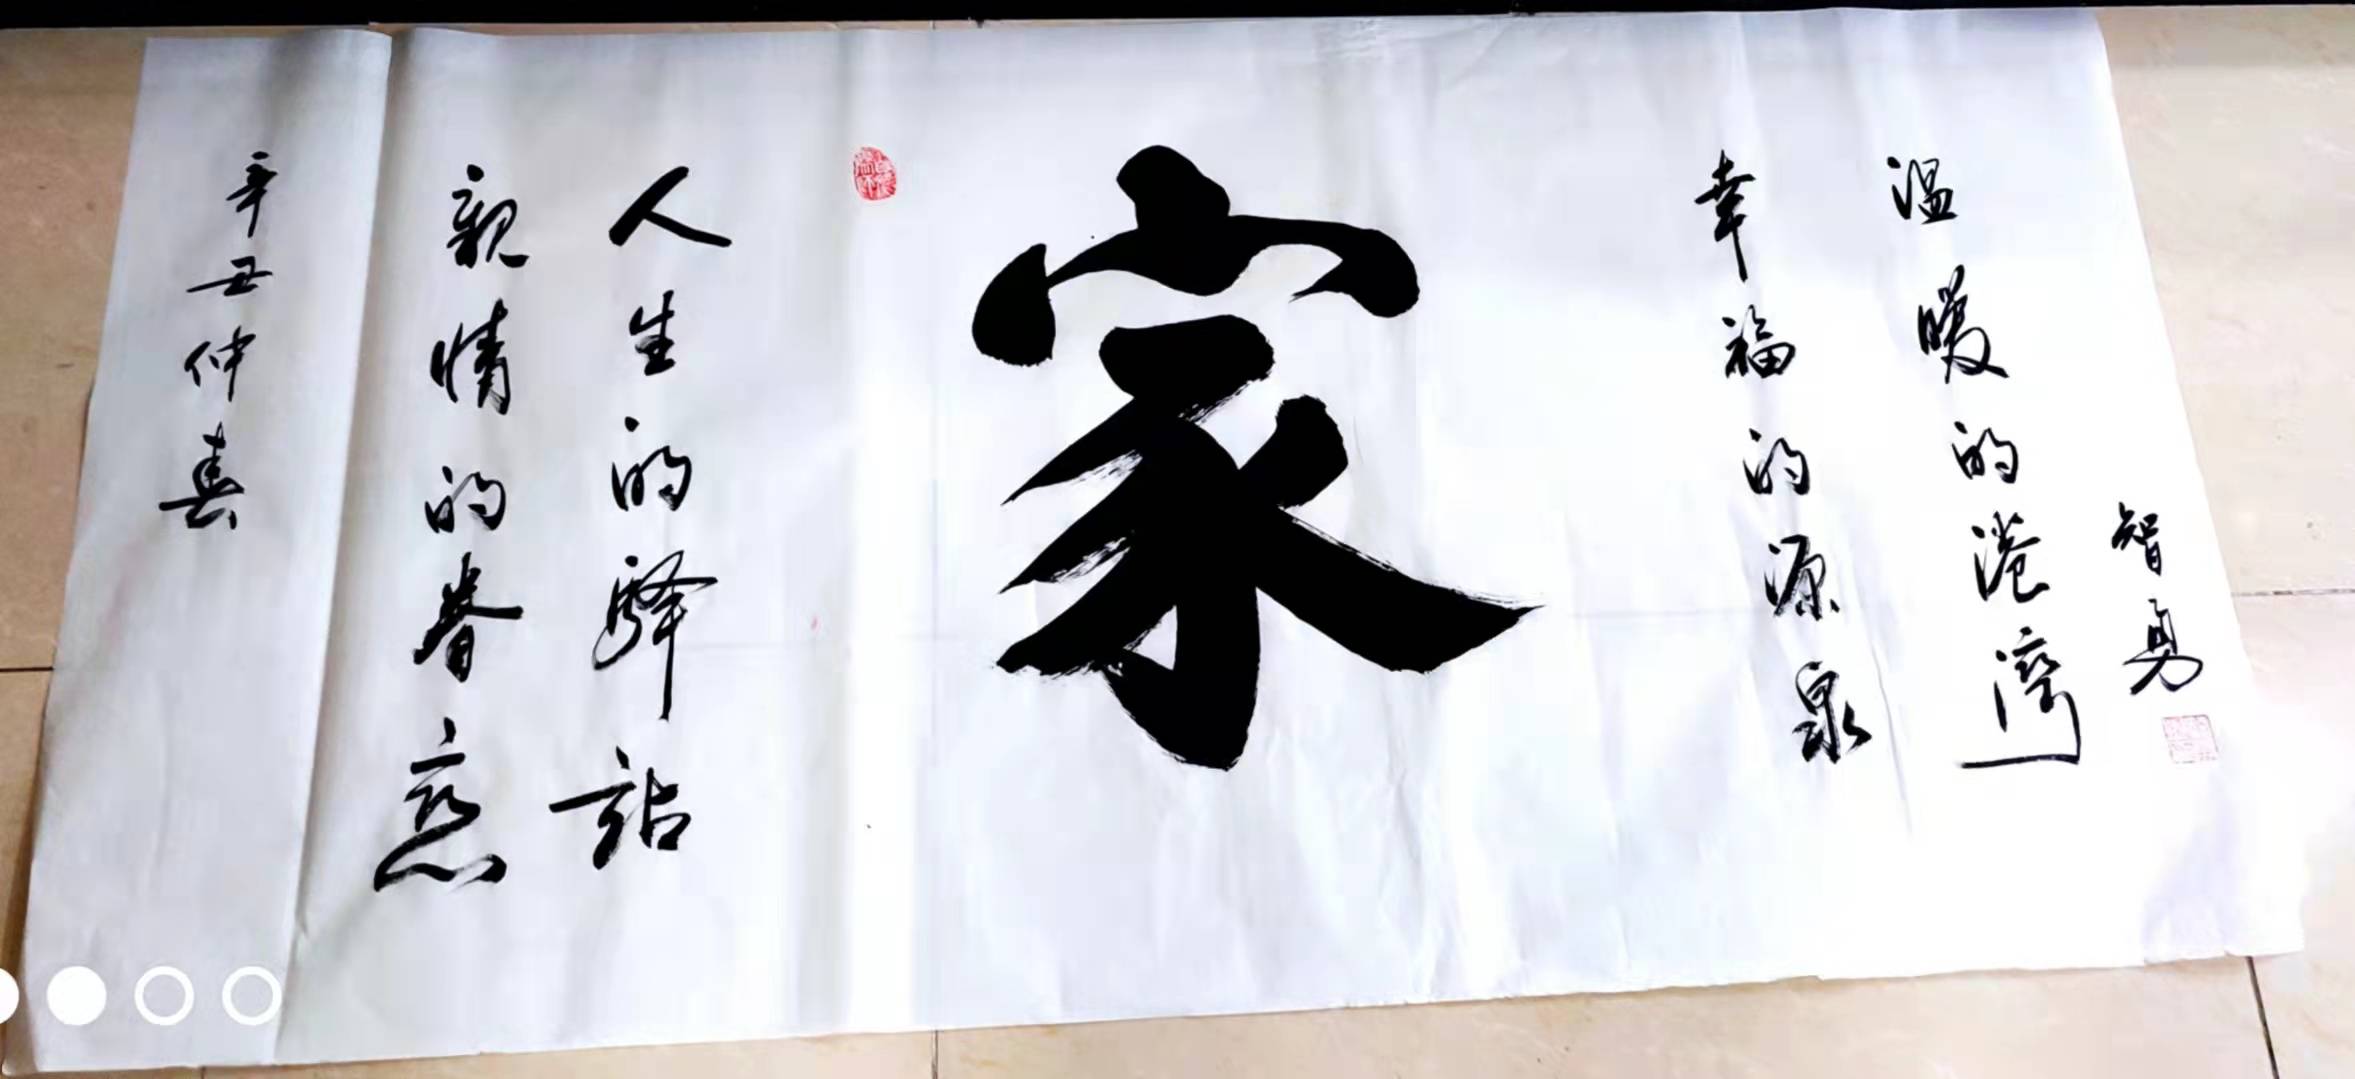 智勇
温暖的港湾
幸福的源泉
家
人生的驿站
親情的眷恋
辛丑仲春